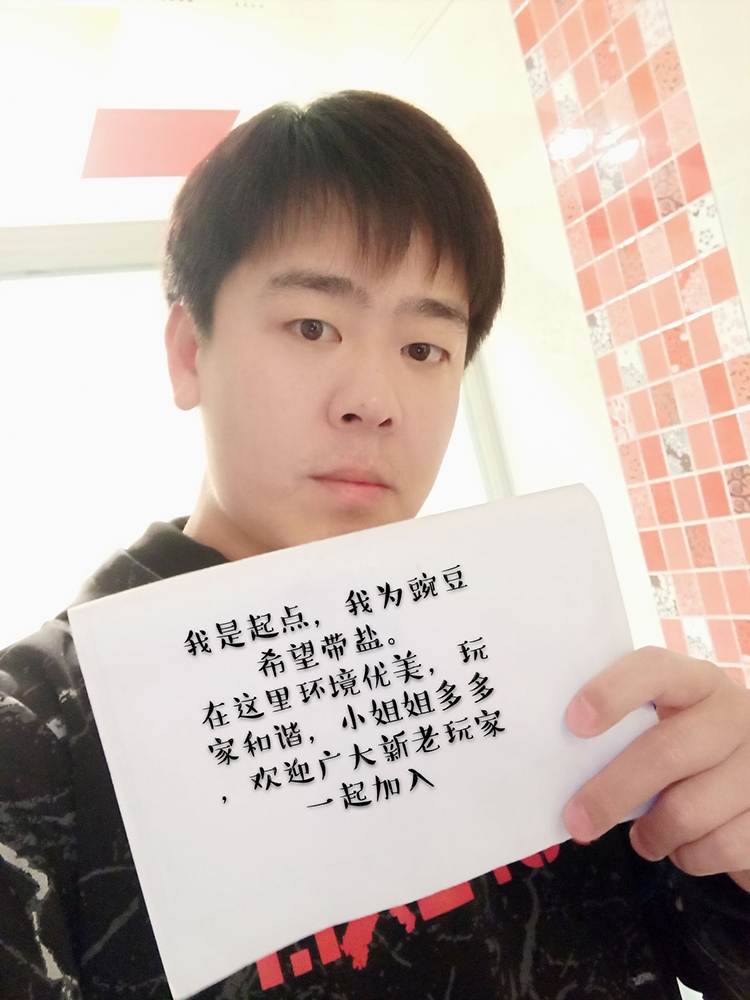 我是起点，我为豌豆
希望带盐。
在这里环境优美，玩
家和谐，小姐姐多多
，欢迎广大新老玩家
一起加入